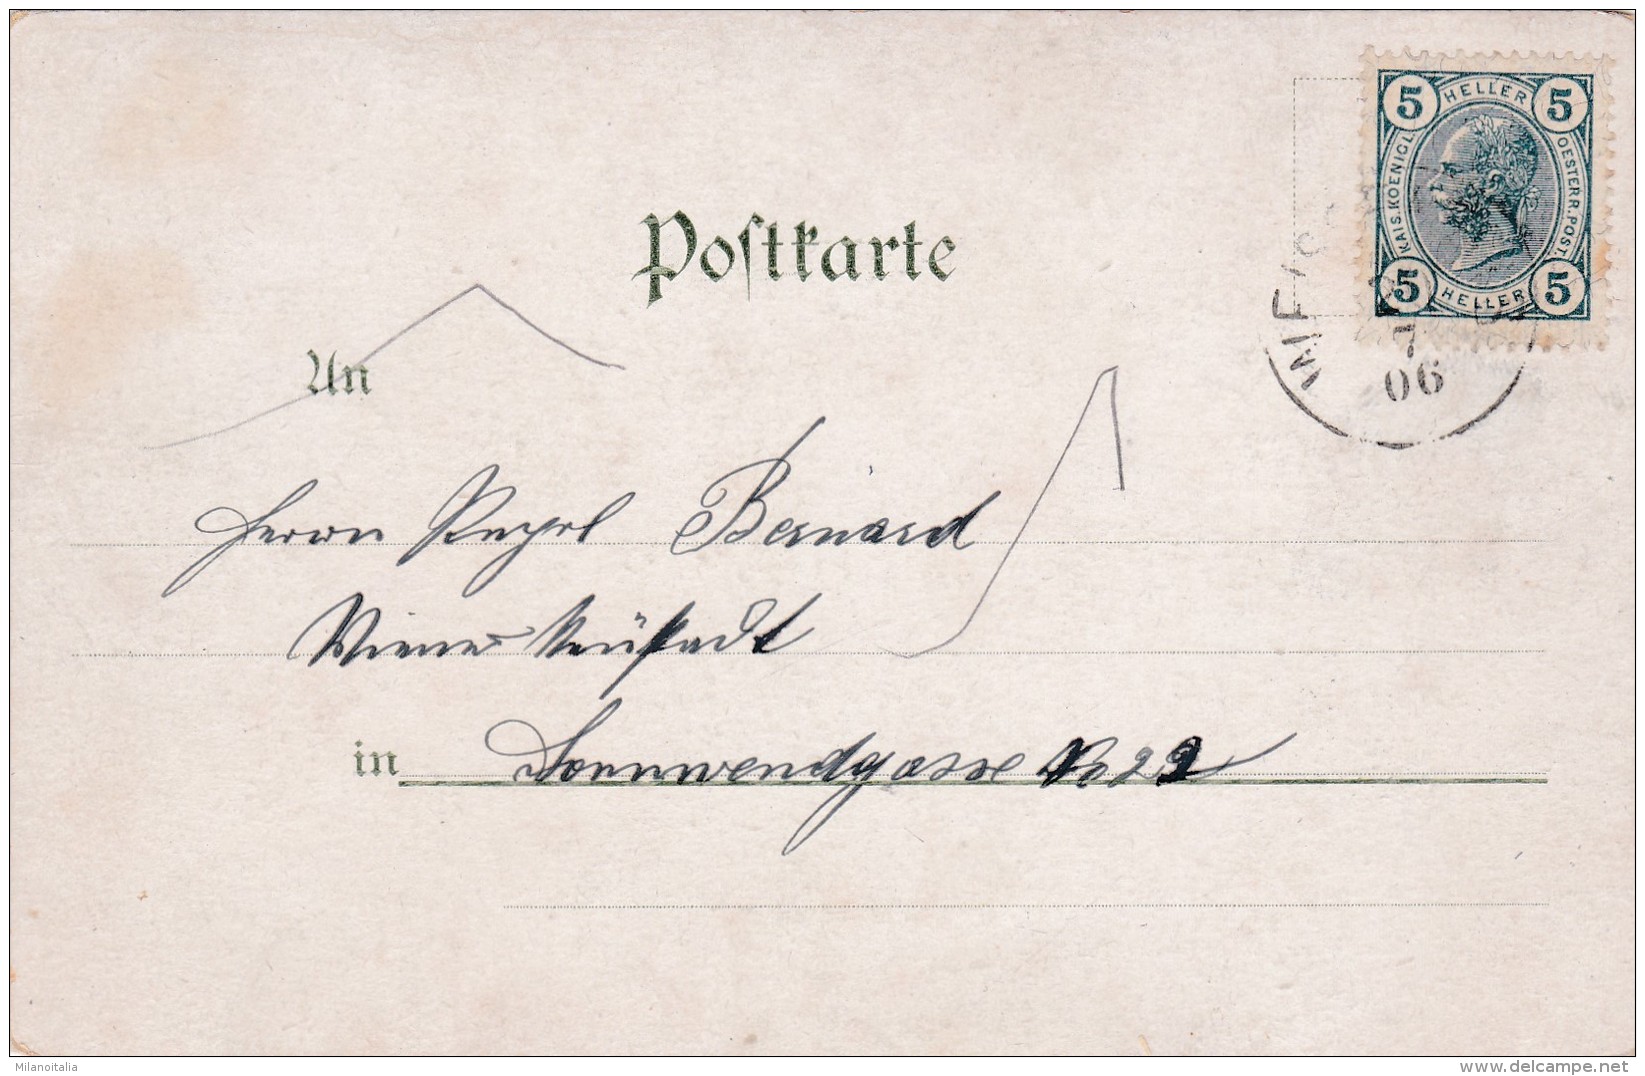 Postkarte
5 HELLER 5
KAIS. KOENIGL.
OESTERR. POST.
5 HELLER 5
06
An
Herrn Bernard
Wiener Neustadt
in Sonnwendgasse No 22
Milanoitalia
www.delcampe.net